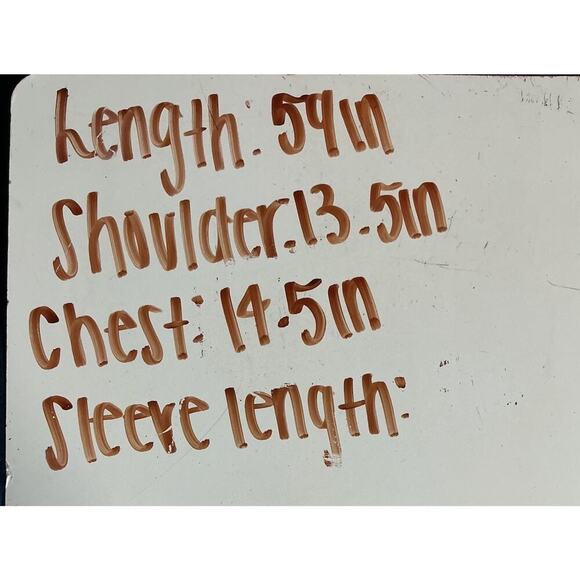 Length: 59in
Shoulder.13.5in
Chest: 14.5in
Sleeve length: